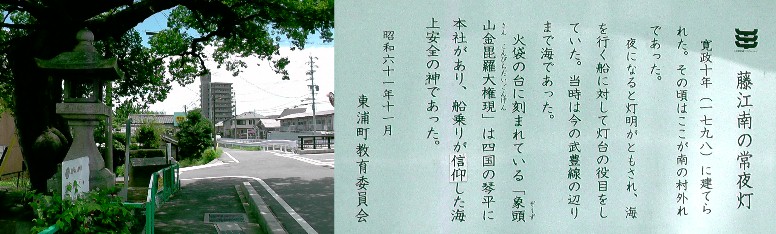 藤江南の常夜灯
寛政十年（一七九八）に建てら
れた。その頃はここが南の村外れ
であった。
夜になると灯明がともされ、海
を行く船に対して灯台の役目をし
ていた。当時は今の武豊線の辺り
まで海であった。
火袋の台に刻まれている「象頭
山金毘羅大権現」は四国の琴平に
本社があり、船乗りが信仰した海
上安全の神であった。
昭和六十一年十一月
東浦町教育委員会